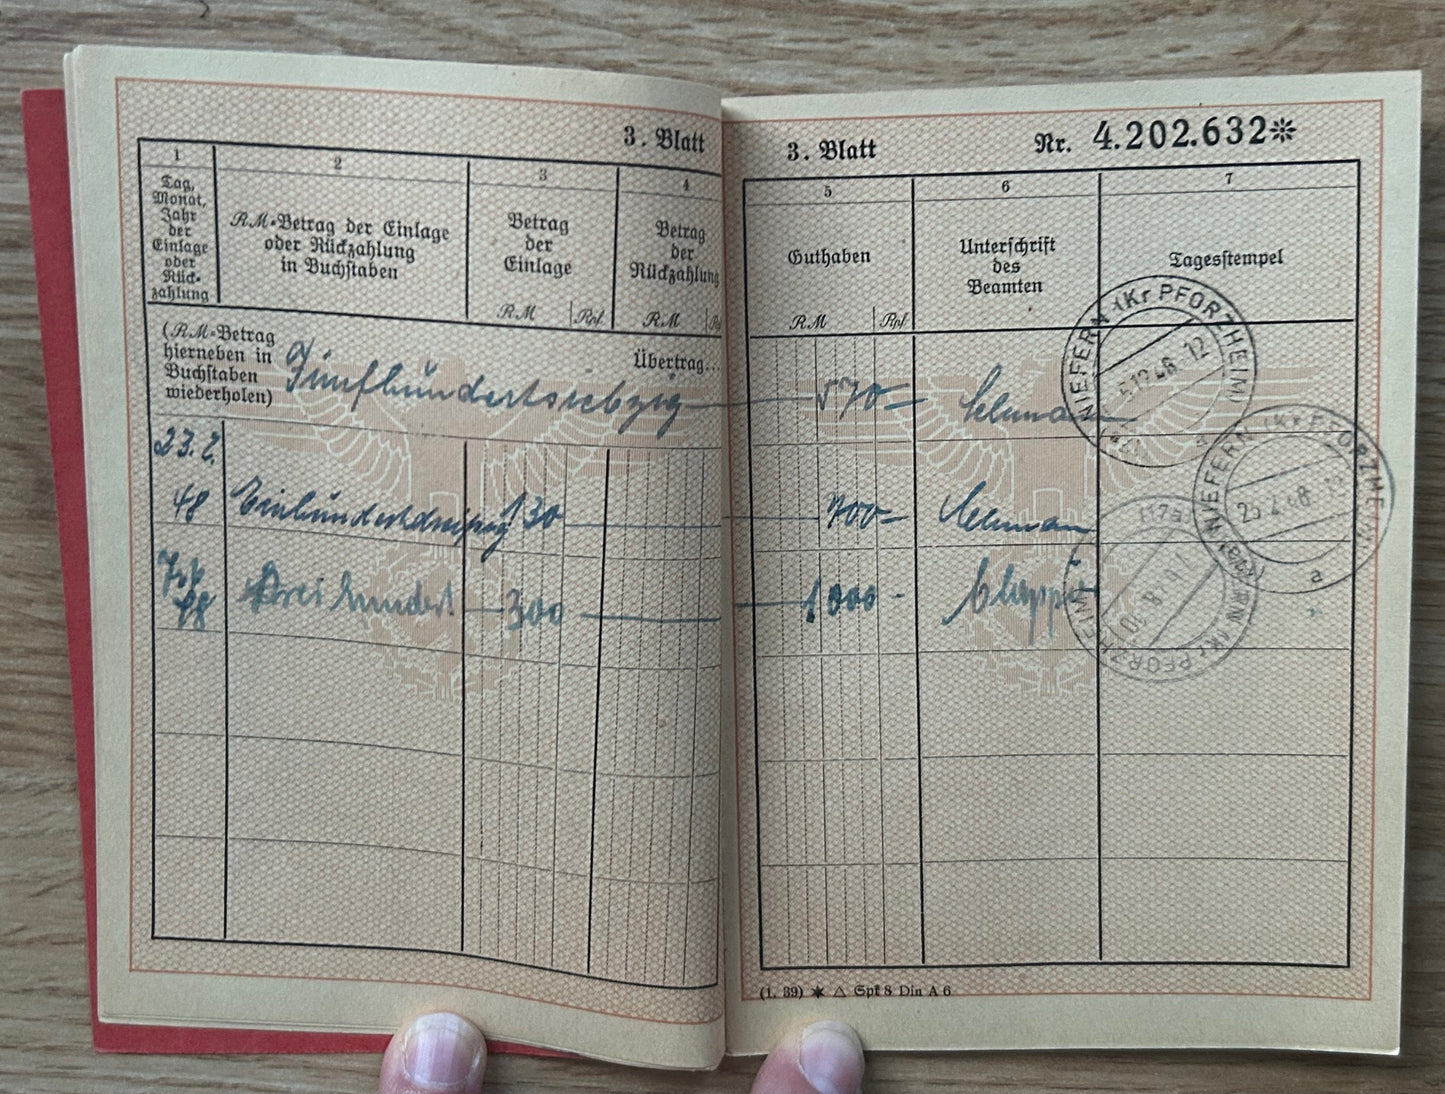 3. Blatt
1
2
3
4
Tag,
Monat,
Jahr
der
Einlage
oder
Rück-
zahlung
RM-Betrag der Einlage
oder Rückzahlung
in Buchstaben
Betrag
der
Einlage
RM Rpf.
Betrag
der
Rückzahlung
RM
(RM-Betrag
hierneben in
Buchstaben
wiederholen)
Fünfhundertsiebzig
Übertrag...
23.2.
48
Einhundertdreißig 130
48
Dreihundert 300
3. Blatt
Nr. 4.202.632*
5
6
7
Guthaben
RM Rpf.
Unterschrift
des
Beamten
Tagesstempel
570-
NIEFERN (Kr PFORZHEIM)
12.46 12
700-
NIEFERN (Kr PFORZHEIM)
a
1000-
NIEFERN (Kr PFORZHEIM)
(17a)
(1. 39) ✶ △ Spk 8 Din A 6